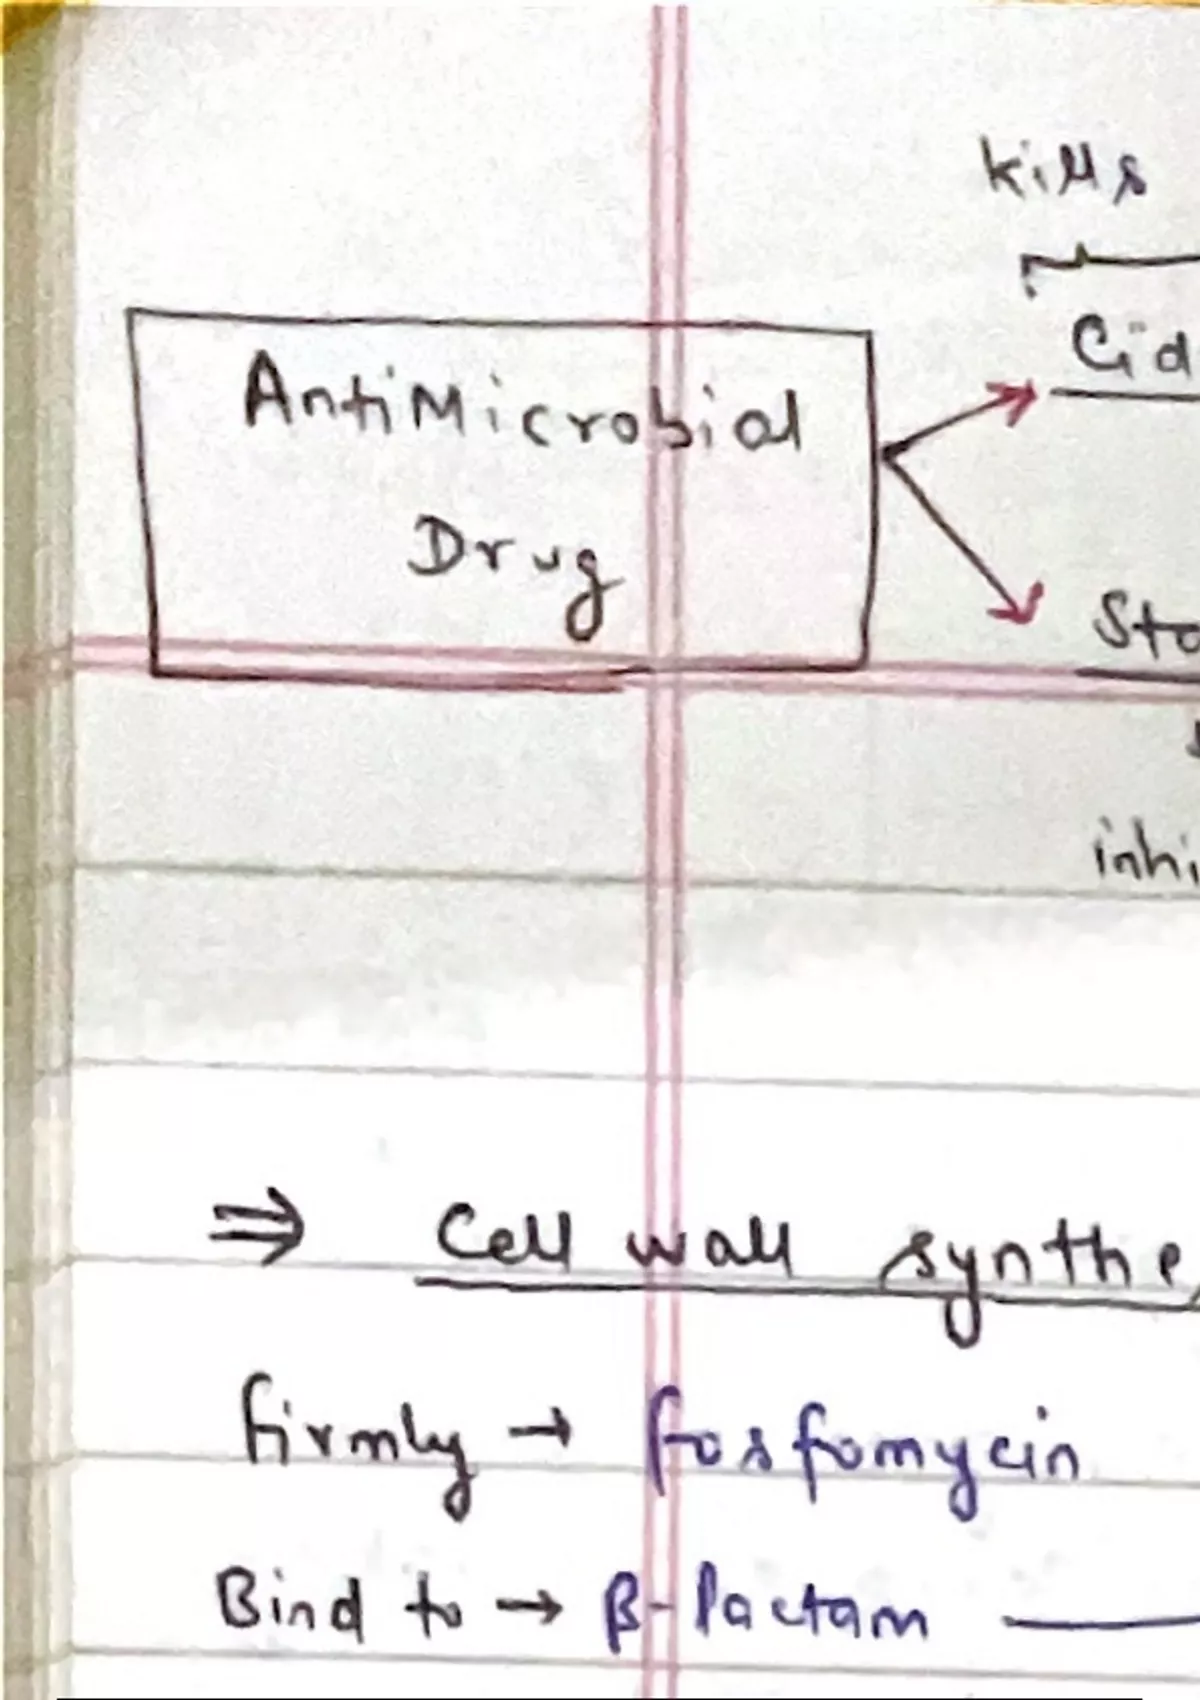 kills
Cid
AntiMicrobial
Drug
Sta
inhi
⇒ Cell wall synthe
firmly → fosfomycin
Bind to → β-lactam